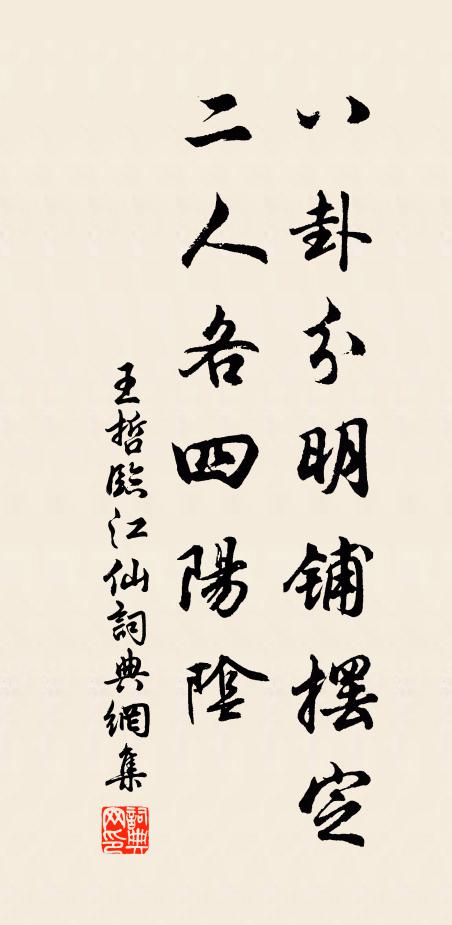 八卦分明鋪擺定
二人各四陽陰
王哲臨江仙詞典網集
詞典网印